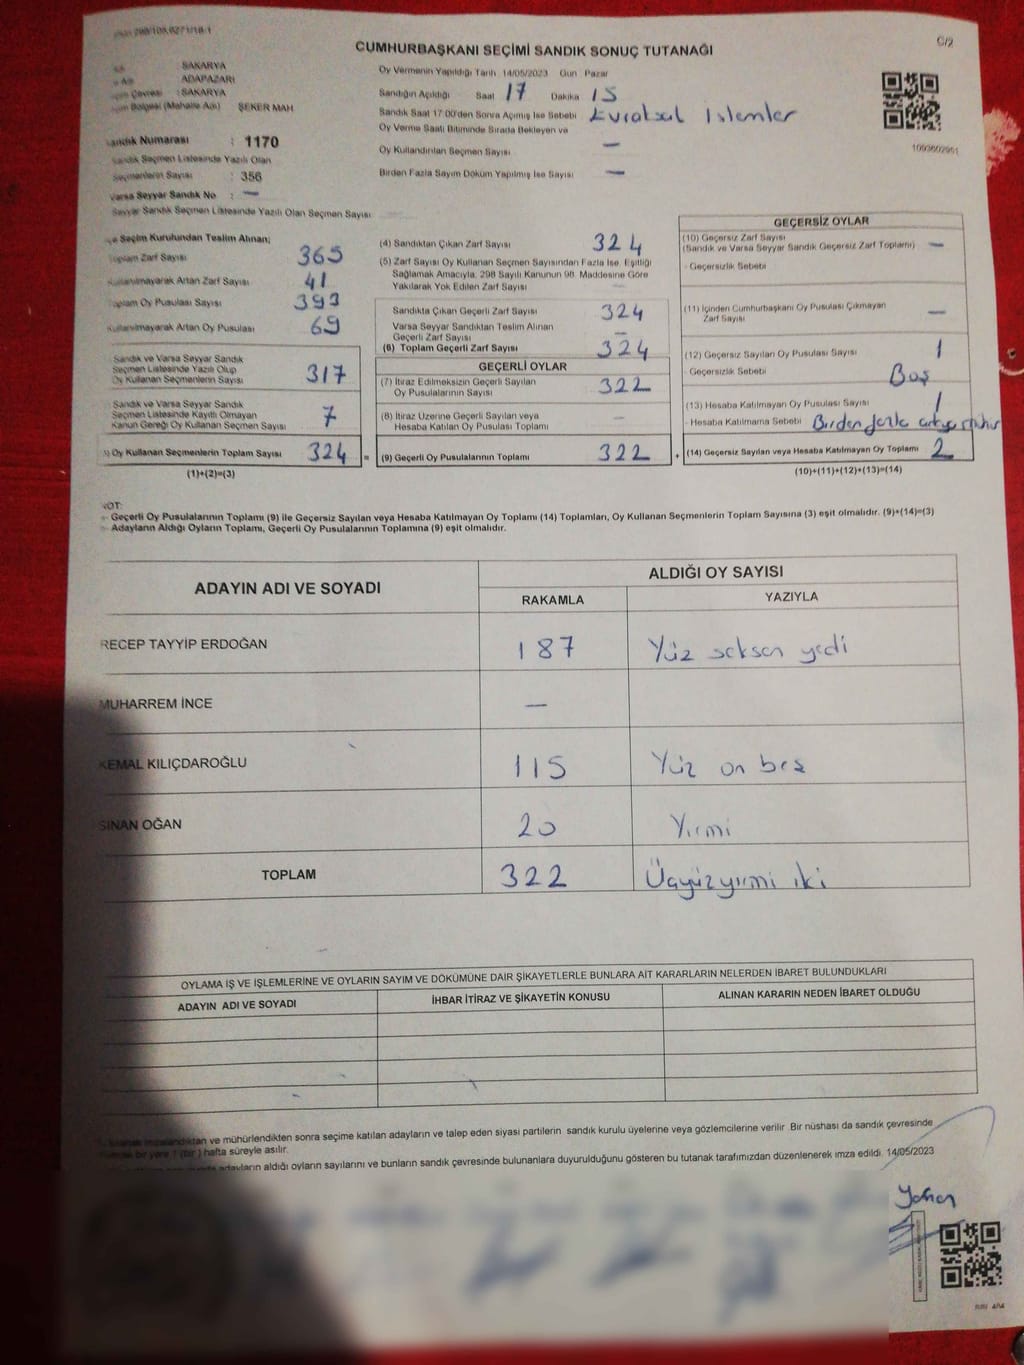 CUMHURBAŞKANI SEÇİMİ SANDIK SONUÇ TUTANAĞI
C/2
SAKARYA
ADAPAZARI
Çevresi : SAKARYA
Bölgesi (Mahalle Adı) ŞEKER MAH
Sandık Numarası : 1170
Sandık Seçmen Listesinde Yazılı Olan
Seçmenlerin Sayısı : 356
Varsa Seyyar Sandık No : —
Seyyar Sandık Seçmen Listesinde Yazılı Olan Seçmen Sayısı
Oy Vermenin Yapıldığı Tarih 14/05/2023 Gün Pazar
Sandığın Açıldığı Saat 17 Dakika 15
Sandık Saat 17.00'den Sonra Açımış İse Sebebi Evraksal İşlemler
Oy Verme Saati Bitiminde Sırada Bekleyen ve
Oy Kullandırılan Seçmen Sayısı —
Birden Fazla Sayım Döküm Yapılmış İse Sayısı —
1093602951
Seçim Kurulundan Teslim Alınan;
Toplam Zarf Sayısı 365
Kullanılmayarak Artan Zarf Sayısı 41
Toplam Oy Pusulası Sayısı 393
Kullanılmayarak Artan Oy Pusulası 69
Sandık ve Varsa Seyyar Sandık
Seçmen Listesinde Yazılı Olup
Oy Kullanan Seçmenlerin Sayısı 317
Sandık ve Varsa Seyyar Sandık
Seçmen Listesinde Kayıtlı Olmayan
Kanun Gereği Oy Kullanan Seçmen Sayısı 7
Oy Kullanan Seçmenlerin Toplam Sayısı 324
(1)+(2)=(3)
(4) Sandıktan Çıkan Zarf Sayısı 324
(5) Zarf Sayısı Oy Kullanan Seçmen Sayısından Fazla İse, Eşitliği
Sağlamak Amacıyla, 298 Sayılı Kanunun 98. Maddesine Göre
Yakılarak Yok Edilen Zarf Sayısı —
Sandıkta Çıkan Geçerli Zarf Sayısı 324
Varsa Seyyar Sandıktan Teslim Alınan
Geçerli Zarf Sayısı —
(6) Toplam Geçerli Zarf Sayısı 324
GEÇERLİ OYLAR
(7) İtiraz Edilmeksizin Geçerli Sayılan
Oy Pusulalarının Sayısı 322
(8) İtiraz Üzerine Geçerli Sayılan veya
Hesaba Katılan Oy Pusulası Toplamı —
= (9) Geçerli Oy Pusulalarının Toplamı 322
GEÇERSİZ OYLAR
(10) Geçersiz Zarf Sayısı
(Sandık ve Varsa Seyyar Sandık Geçersiz Zarf Toplamı) —
- Geçersizlik Sebebi
(11) İçinden Cumhurbaşkanı Oy Pusulası Çıkmayan
Zarf Sayısı —
(12) Geçersiz Sayılan Oy Pusulası Sayısı 1
- Geçersizlik Sebebi Boş
(13) Hesaba Katılmayan Oy Pusulası Sayısı 1
- Hesaba Katılmama Sebebi Birden fazla
+ (14) Geçersiz Sayılan veya Hesaba Katılmayan Oy Toplamı 2
(10)+(11)+(12)+(13)=(14)
NOT:
- Geçerli Oy Pusulalarının Toplamı (9) ile Geçersiz Sayılan veya Hesaba Katılmayan Oy Toplamı (14) Toplamları, Oy Kullanan Seçmenlerin Toplam Sayısına (3) eşit olmalıdır. (9)+(14)=(3)
- Adayların Aldığı Oyların Toplamı, Geçerli Oy Pusulalarının Toplamına (9) eşit olmalıdır.
ADAYIN ADI VE SOYADI
ALDIĞI OY SAYISI
RAKAMLA YAZIYLA
RECEP TAYYİP ERDOĞAN 187 Yüz seksen yedi
MUHARREM İNCE —
KEMAL KILIÇDAROĞLU 115 Yüz on beş
SİNAN OĞAN 20 Yirmi
TOPLAM 322 Üçyüzyirmi iki
OYLAMA İŞ VE İŞLEMLERİNE VE OYLARIN SAYIM VE DÖKÜMÜNE DAİR ŞİKAYETLERLE BUNLARA AİT KARARLARIN NELERDEN İBARET BULUNDUKLARI
ADAYIN ADI VE SOYADI İHBAR İTİRAZ VE ŞİKAYETİN KONUSU ALINAN KARARIN NEDEN İBARET OLDUĞU
imzalandıktan ve mühürlendikten sonra seçime katılan adayların ve talep eden siyasi partilerin sandık kurulu üyelerine veya gözlemcilerine verilir Bir nüshası da sandık çevresinde
bir yere 1 (bir) hafta süreyle asılır.
adayların aldığı oyların sayılarını ve bunların sandık çevresinde bulunanlara duyurulduğunu gösteren bu tutanak tarafımızdan düzenlenerek imza edildi. 14/05/2023